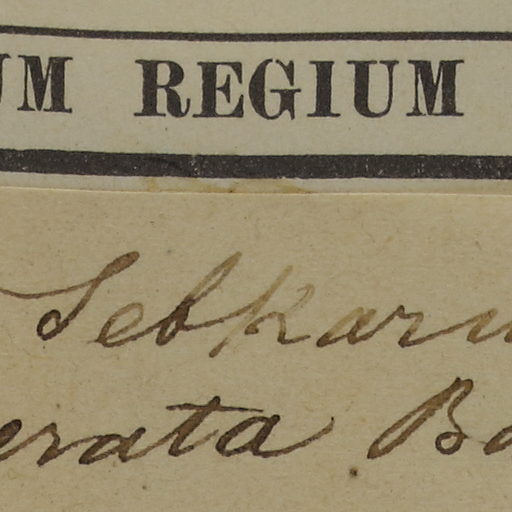 UM REGIUM
Sebkaru
erata Ba